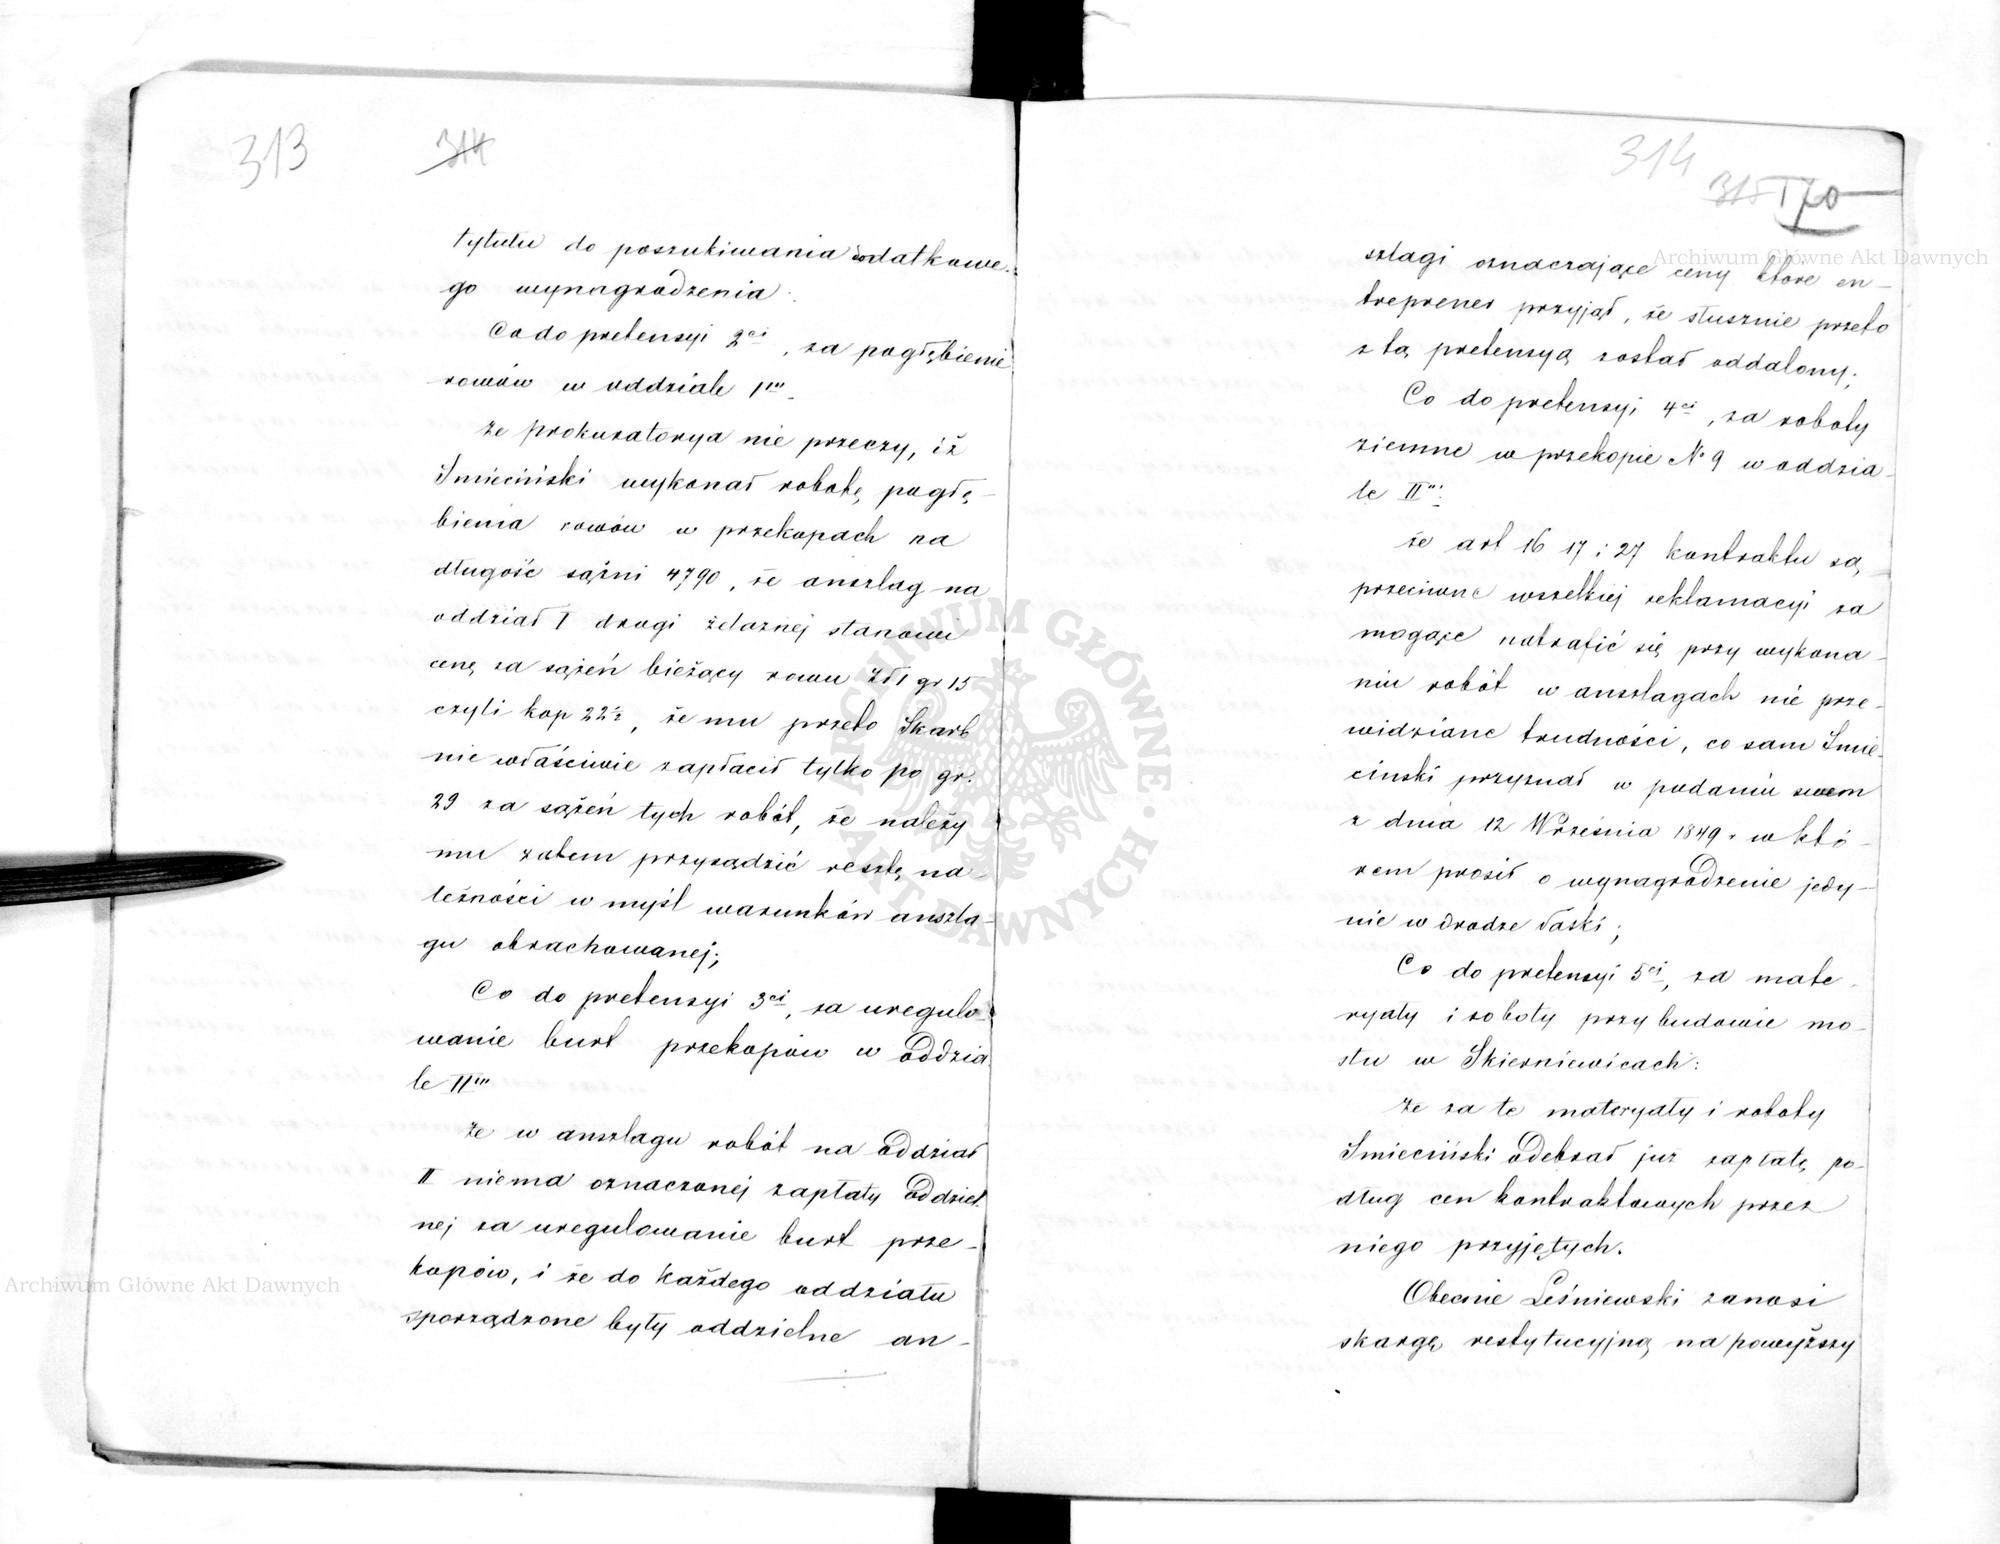 313
314
tytułu do poszukiwania dodatkowe-
go wynagrodzenia.
Co do pretensyi 2ei, za pogłębienie
rowów w oddziale Im.
że prokuratorya nie przeczy, iż
Smieciński wykonał robotę pogłę-
bienia rowów w przekopach na
długość sążni 4790, że anszlag na
oddział I drogi żelaznej stanowi
cenę za sążeń bieżący rowu Zł 1 gr 15
czyli kop 22½, że mu przeto Skarb
nie właściwie zapłacił tylko po gr.
29 za sążeń tych robót, że należy
mu zatem przysądzić resztę na-
leżności w myśl warunków anszla-
gu obrachowanej;
Co do pretensyi 3ei, za uregulo-
wanie burt przekopów w Oddzia-
le IIm
że w anszlagu robót na Oddział
II niema oznaczonej zapłaty Oddziel-
nej za uregulowanie burt prze-
kopów, i że do każdego oddziału
sporządzone były oddzielne an-
314
315 I 70
szlagi oznaczające ceny które en-
treprener przyjął, że słusznie przeto
z tą pretensyą został oddalony;
Co do pretensyi 4ei, za roboty
ziemne w przekopie No 9 w oddzia-
le IIm:
że art 16 17 i 27 kontraktu są
przeciwne wszelkiej reklamacyi za
mogące natrafić się przy wykona-
niu robót w anszlagach nie prze-
widziane trudności, co sam Smie-
ciński przyznał w podaniu swem
z dnia 12 Września 1849 r w któ-
rem prosił o wynagrodzenie jedy-
nie w drodze łaski;
Co do pretensyi 5ei, za mate-
ryały i roboty przy budowie mo-
stu w Skierniewicach:
że za te materyały i roboty
Smieciński Odebrał już zapłatę po-
dług cen kontraktowych przez
niego przyjętych.
Obecnie Leśniewski zanosi
skargę restytucyjną na powyższy
Archiwum Główne Akt Dawnych
Archiwum Główne Akt Dawnych
ARCHIWUM GŁÓWNE · AKT DAWNYCH ·